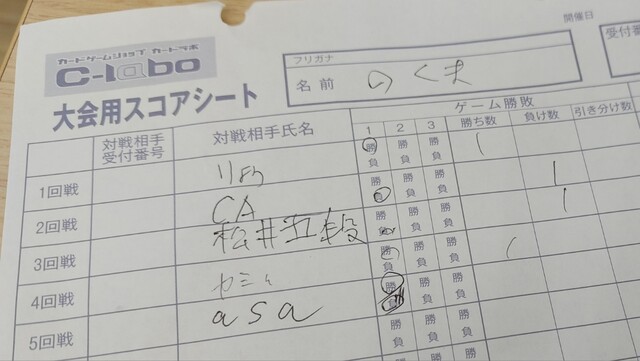 カードゲームショップ カードラボ
C-labo
大会用スコアシート
開催日
フリガナ
名前 のくま
受付番
対戦相手受付番号 対戦相手氏名 ゲーム勝敗 勝ち数 負け数 引き分け数
1 2 3
1回戦 勝 負 勝 負 勝 負 1
2回戦 CA 勝 負 勝 負 勝 負 1
3回戦 松井五段 勝 負 勝 負 勝 負 1
4回戦 勝 負 勝 負 勝 負 1
5回戦 asa 勝 負 勝 負 勝 負